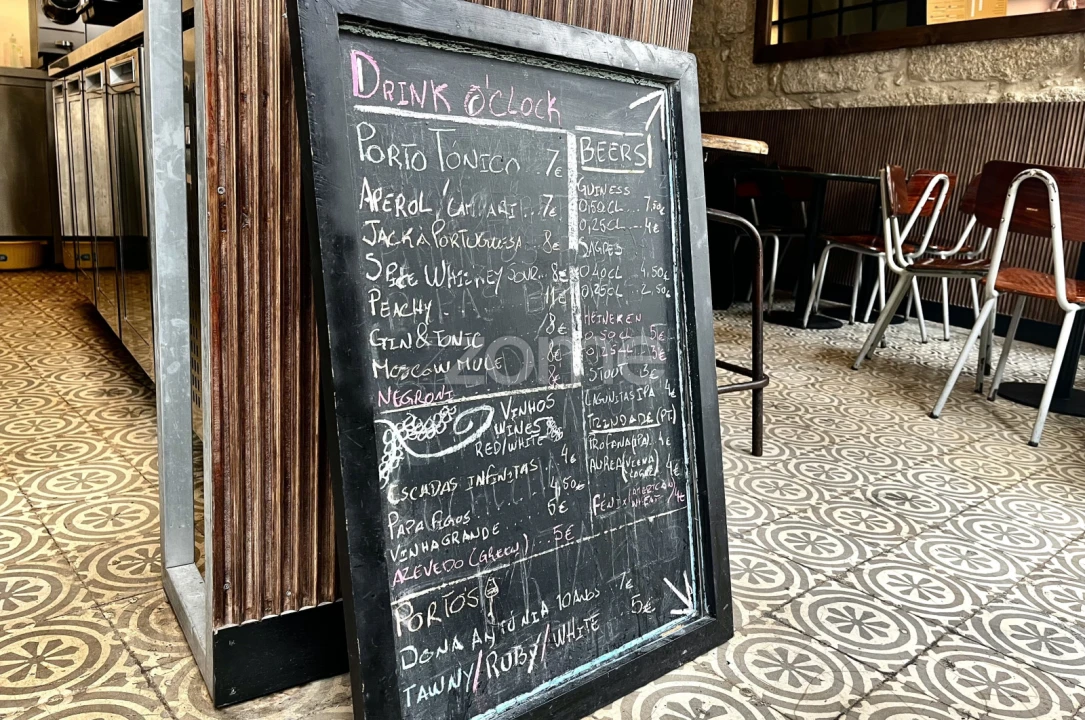 DRINK O'CLOCK
PORTO TÓNICO 7€
APEROL/CAMPARI... 7€
JACK À PORTUGUESA.. 8€
SPICE WHISKEY SOUR... 8€
PEACHY
GIN & TONIC 8€
MOSCOW MULE 8€
NEGRONI 8€
VINHOS
WINES
RED/WHITE
ESCADAS INFINITAS... 4€
PAPA FIGOS 4,50€
VINHA GRANDE... 6€
AZEVEDO (GREEN)... 5€
PORTO'S
DONA ANTÓNIA 10 ANOS 7€
TAWNY/RUBY/WHITE 5€
BEERS
GUINESS
0,50CL... 7,50€
0,25CL... 4€
SAGRES
0,40CL 4,50€
0,25CL... 2,50€
HEINEKEN
0,50CL 5€
0,25CL 3€
STOUT 3€
LAGUNITAS IPA 4€
TRINDADE (PT)
PROFANA (IPA) 4€
AUREA (VIENA LAGER) 4€
FENIX (AMERICAN WHEAT) 4€
zome